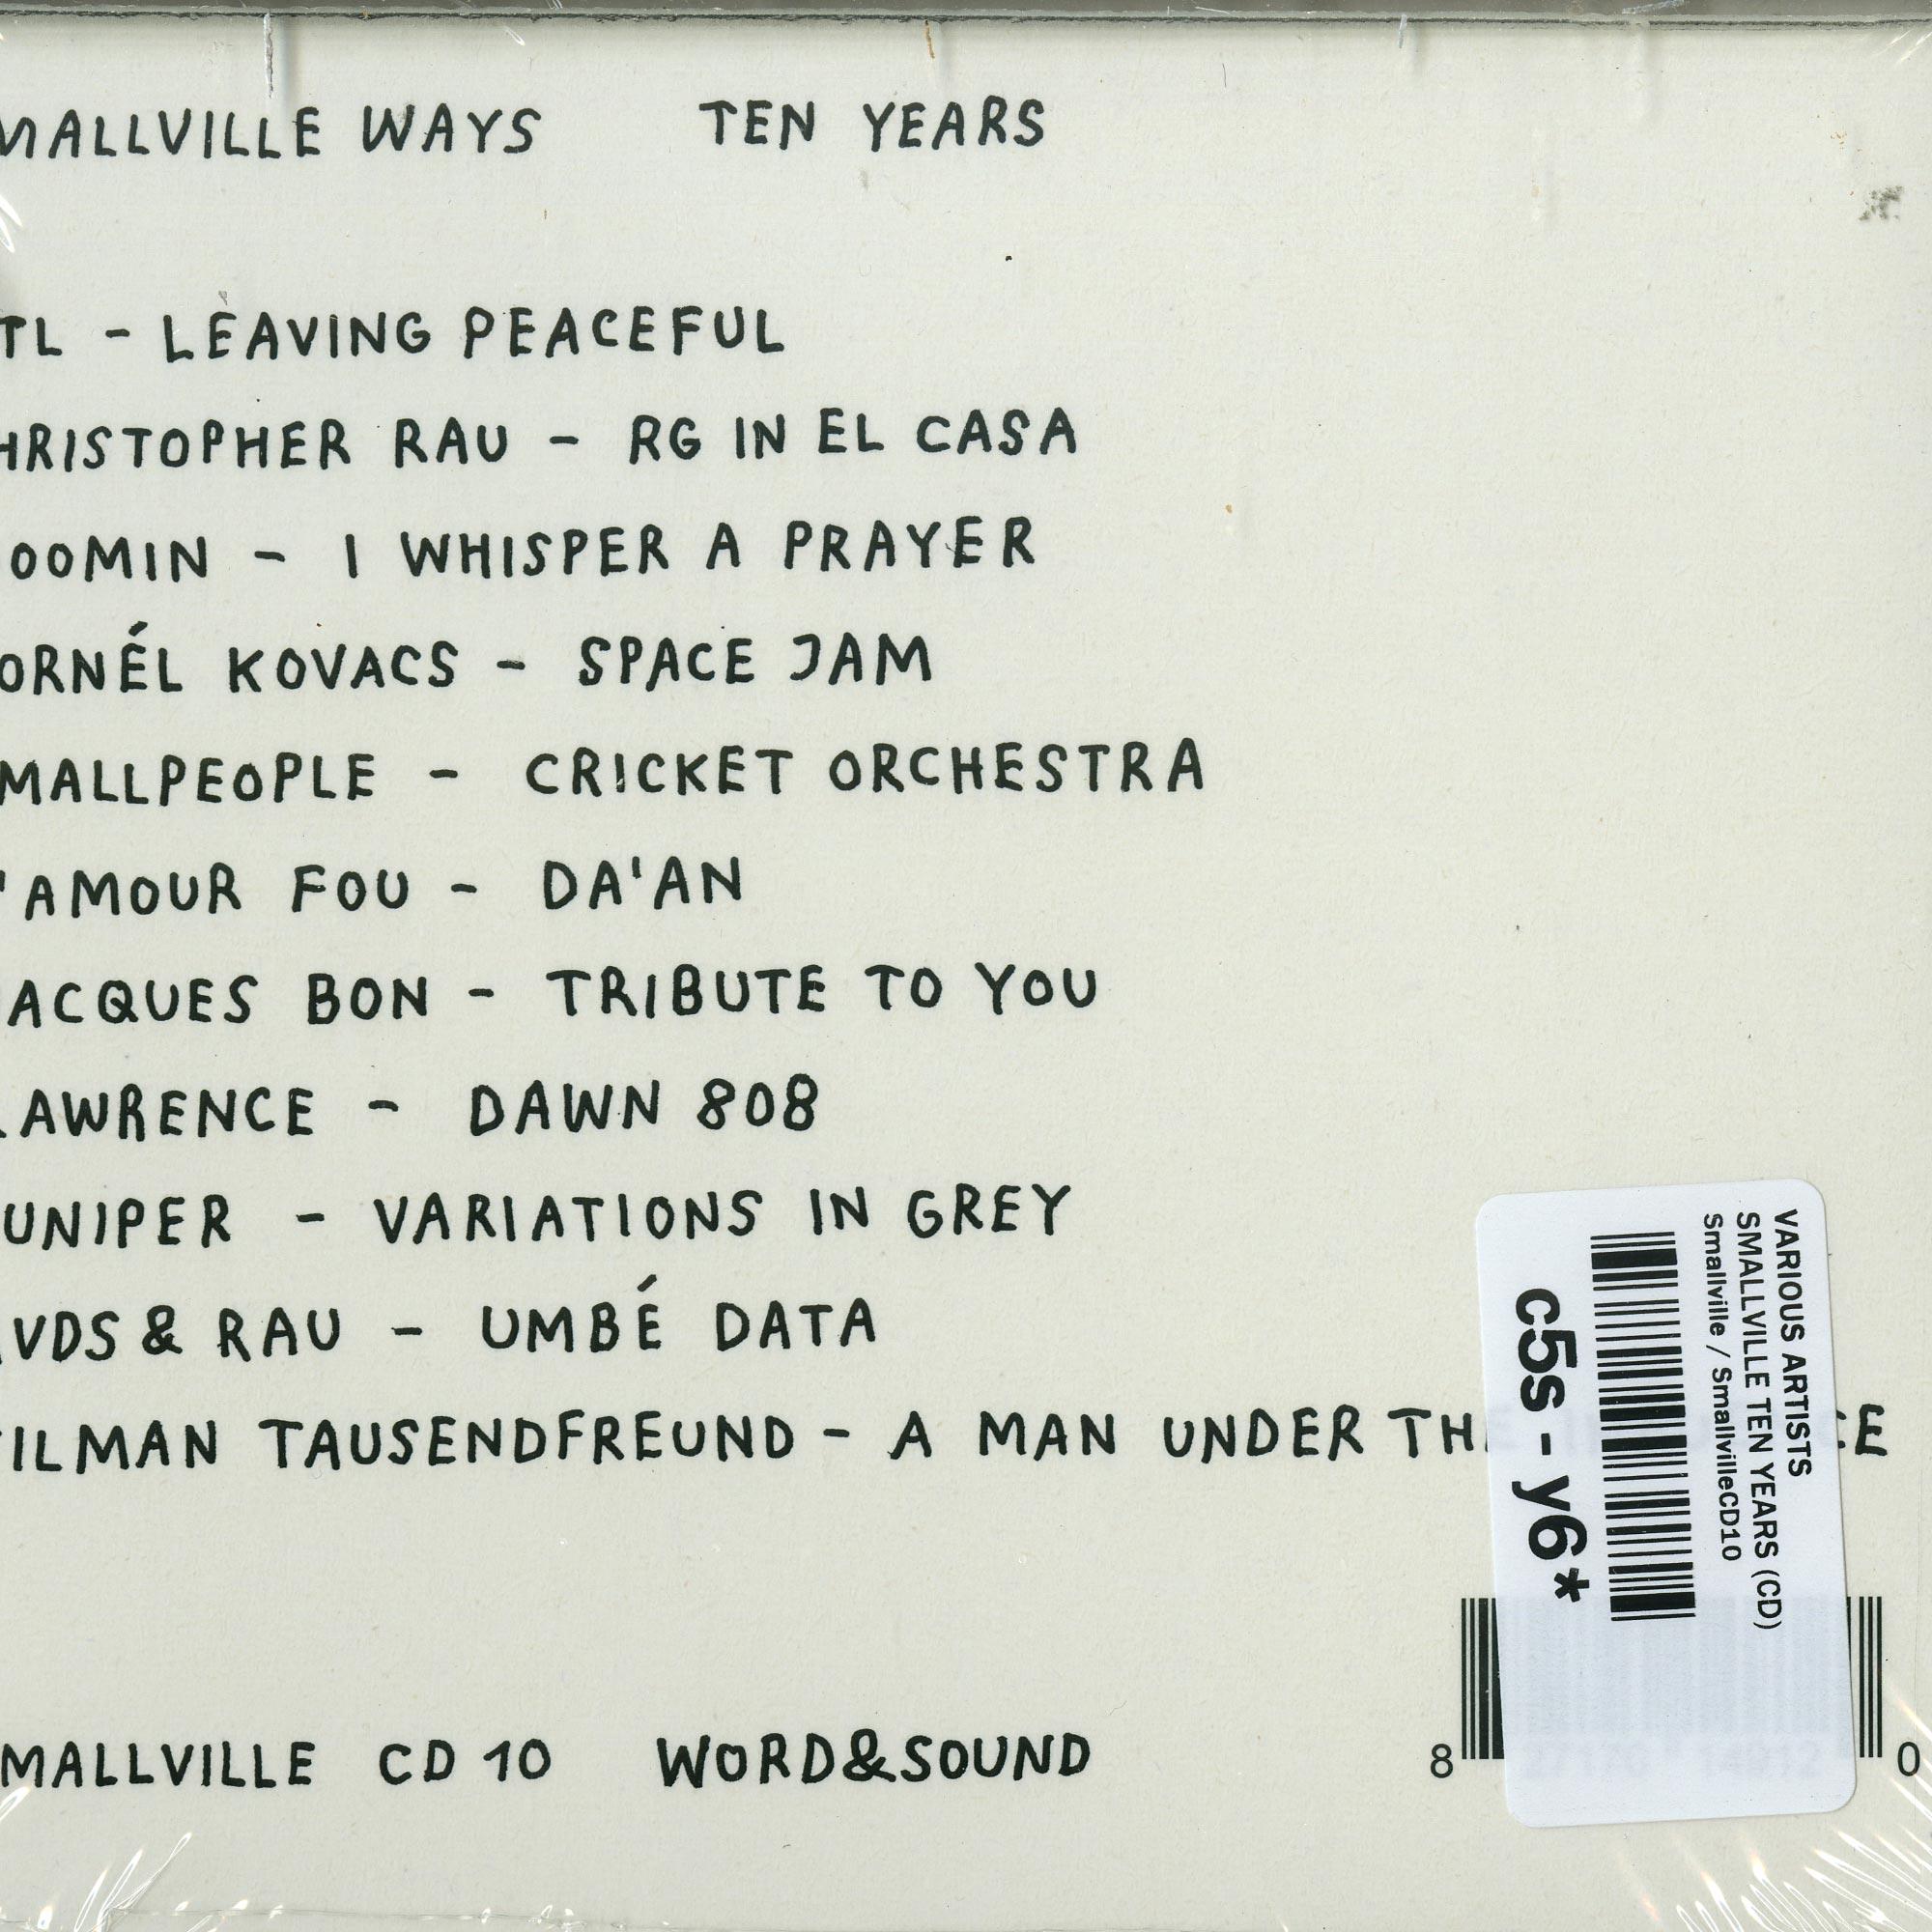 MALLVILLE WAYS TEN YEARS
TL - LEAVING PEACEFUL
HRISTOPHER RAU - RG IN EL CASA
OOMIN - I WHISPER A PRAYER
ORNÉL KOVACS - SPACE JAM
MALLPEOPLE - CRICKET ORCHESTRA
'AMOUR FOU - DA'AN
ACQUES BON - TRIBUTE TO YOU
LAWRENCE - DAWN 808
UNIPER - VARIATIONS IN GREY
VDS & RAU - UMBÉ DATA
TILMAN TAUSENDFREUND - A MAN UNDER THE
MALLVILLE CD 10 WORD&SOUND
VARIOUS ARTISTS
SMALLVILLE TEN YEARS (CD)
Smallville / SmallvilleCD10
c5s - y6*
8 0